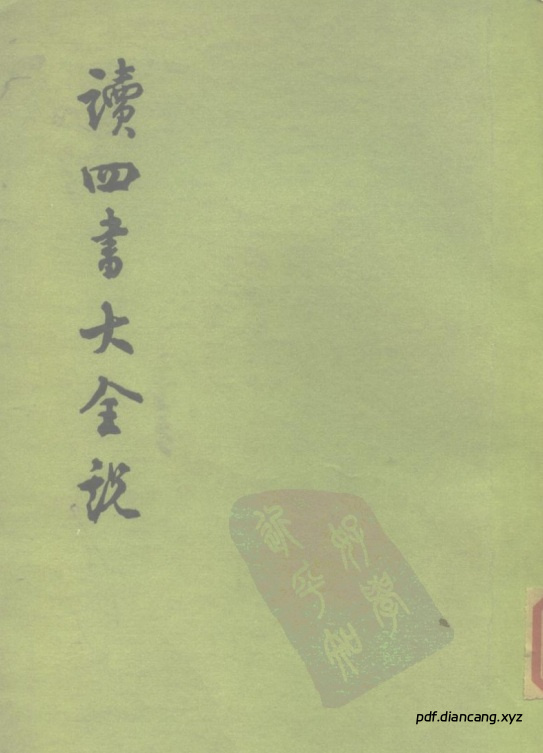 讀四書大全說
好學
近乎知
pdf.diancang.xyz